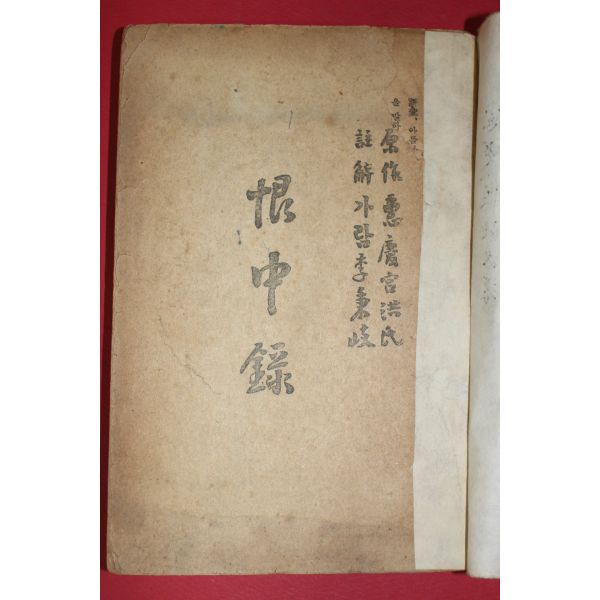 原作 惠慶宮洪氏
註解 가람 李秉岐
恨中錄